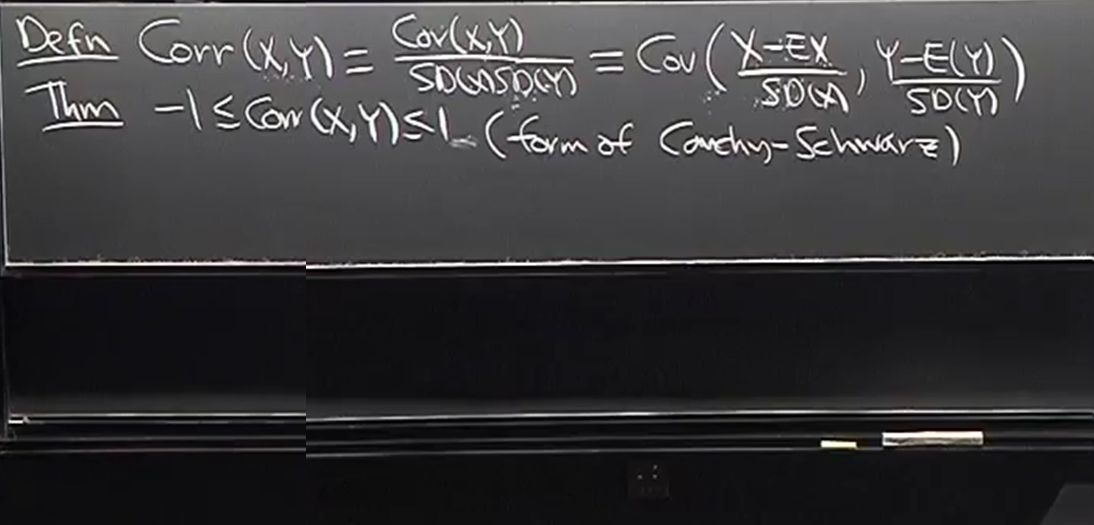 Defn Corr(X,Y) = Cov(X,Y) / SD(X)SD(Y) = Cov( X-EX / SD(X) , Y-E(Y) / SD(Y) )
Thm -1 ≤ Corr(X,Y) ≤ 1 (form of Cauchy-Schwarz)